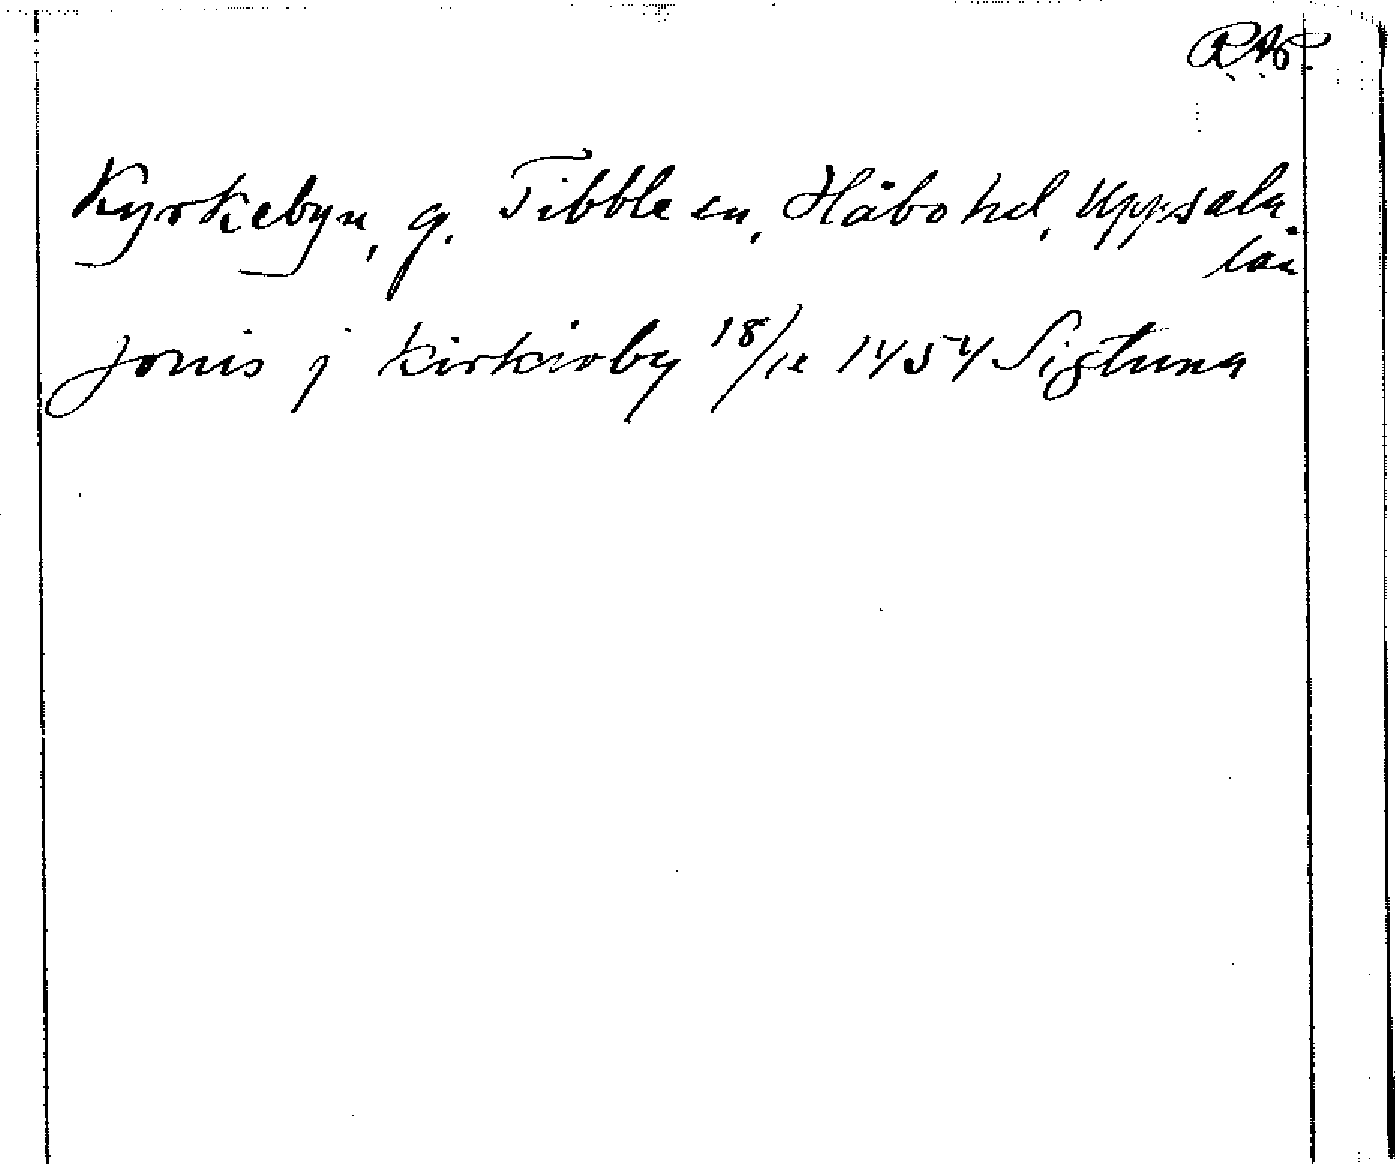 Kyrkebyn, g. Tibble sn, Håbo hd, Uppsala
län
jonis j kirkioby 18/12 1454 Sigtuna